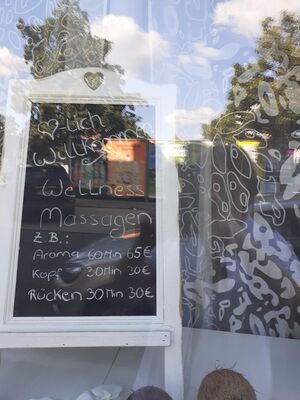 ♡lich
Willkommen
Wellness
Massagen
Z.B.:
Aroma 60 Min 65€
Kopf 20 Min 30€
Rücken 30 Min 30€